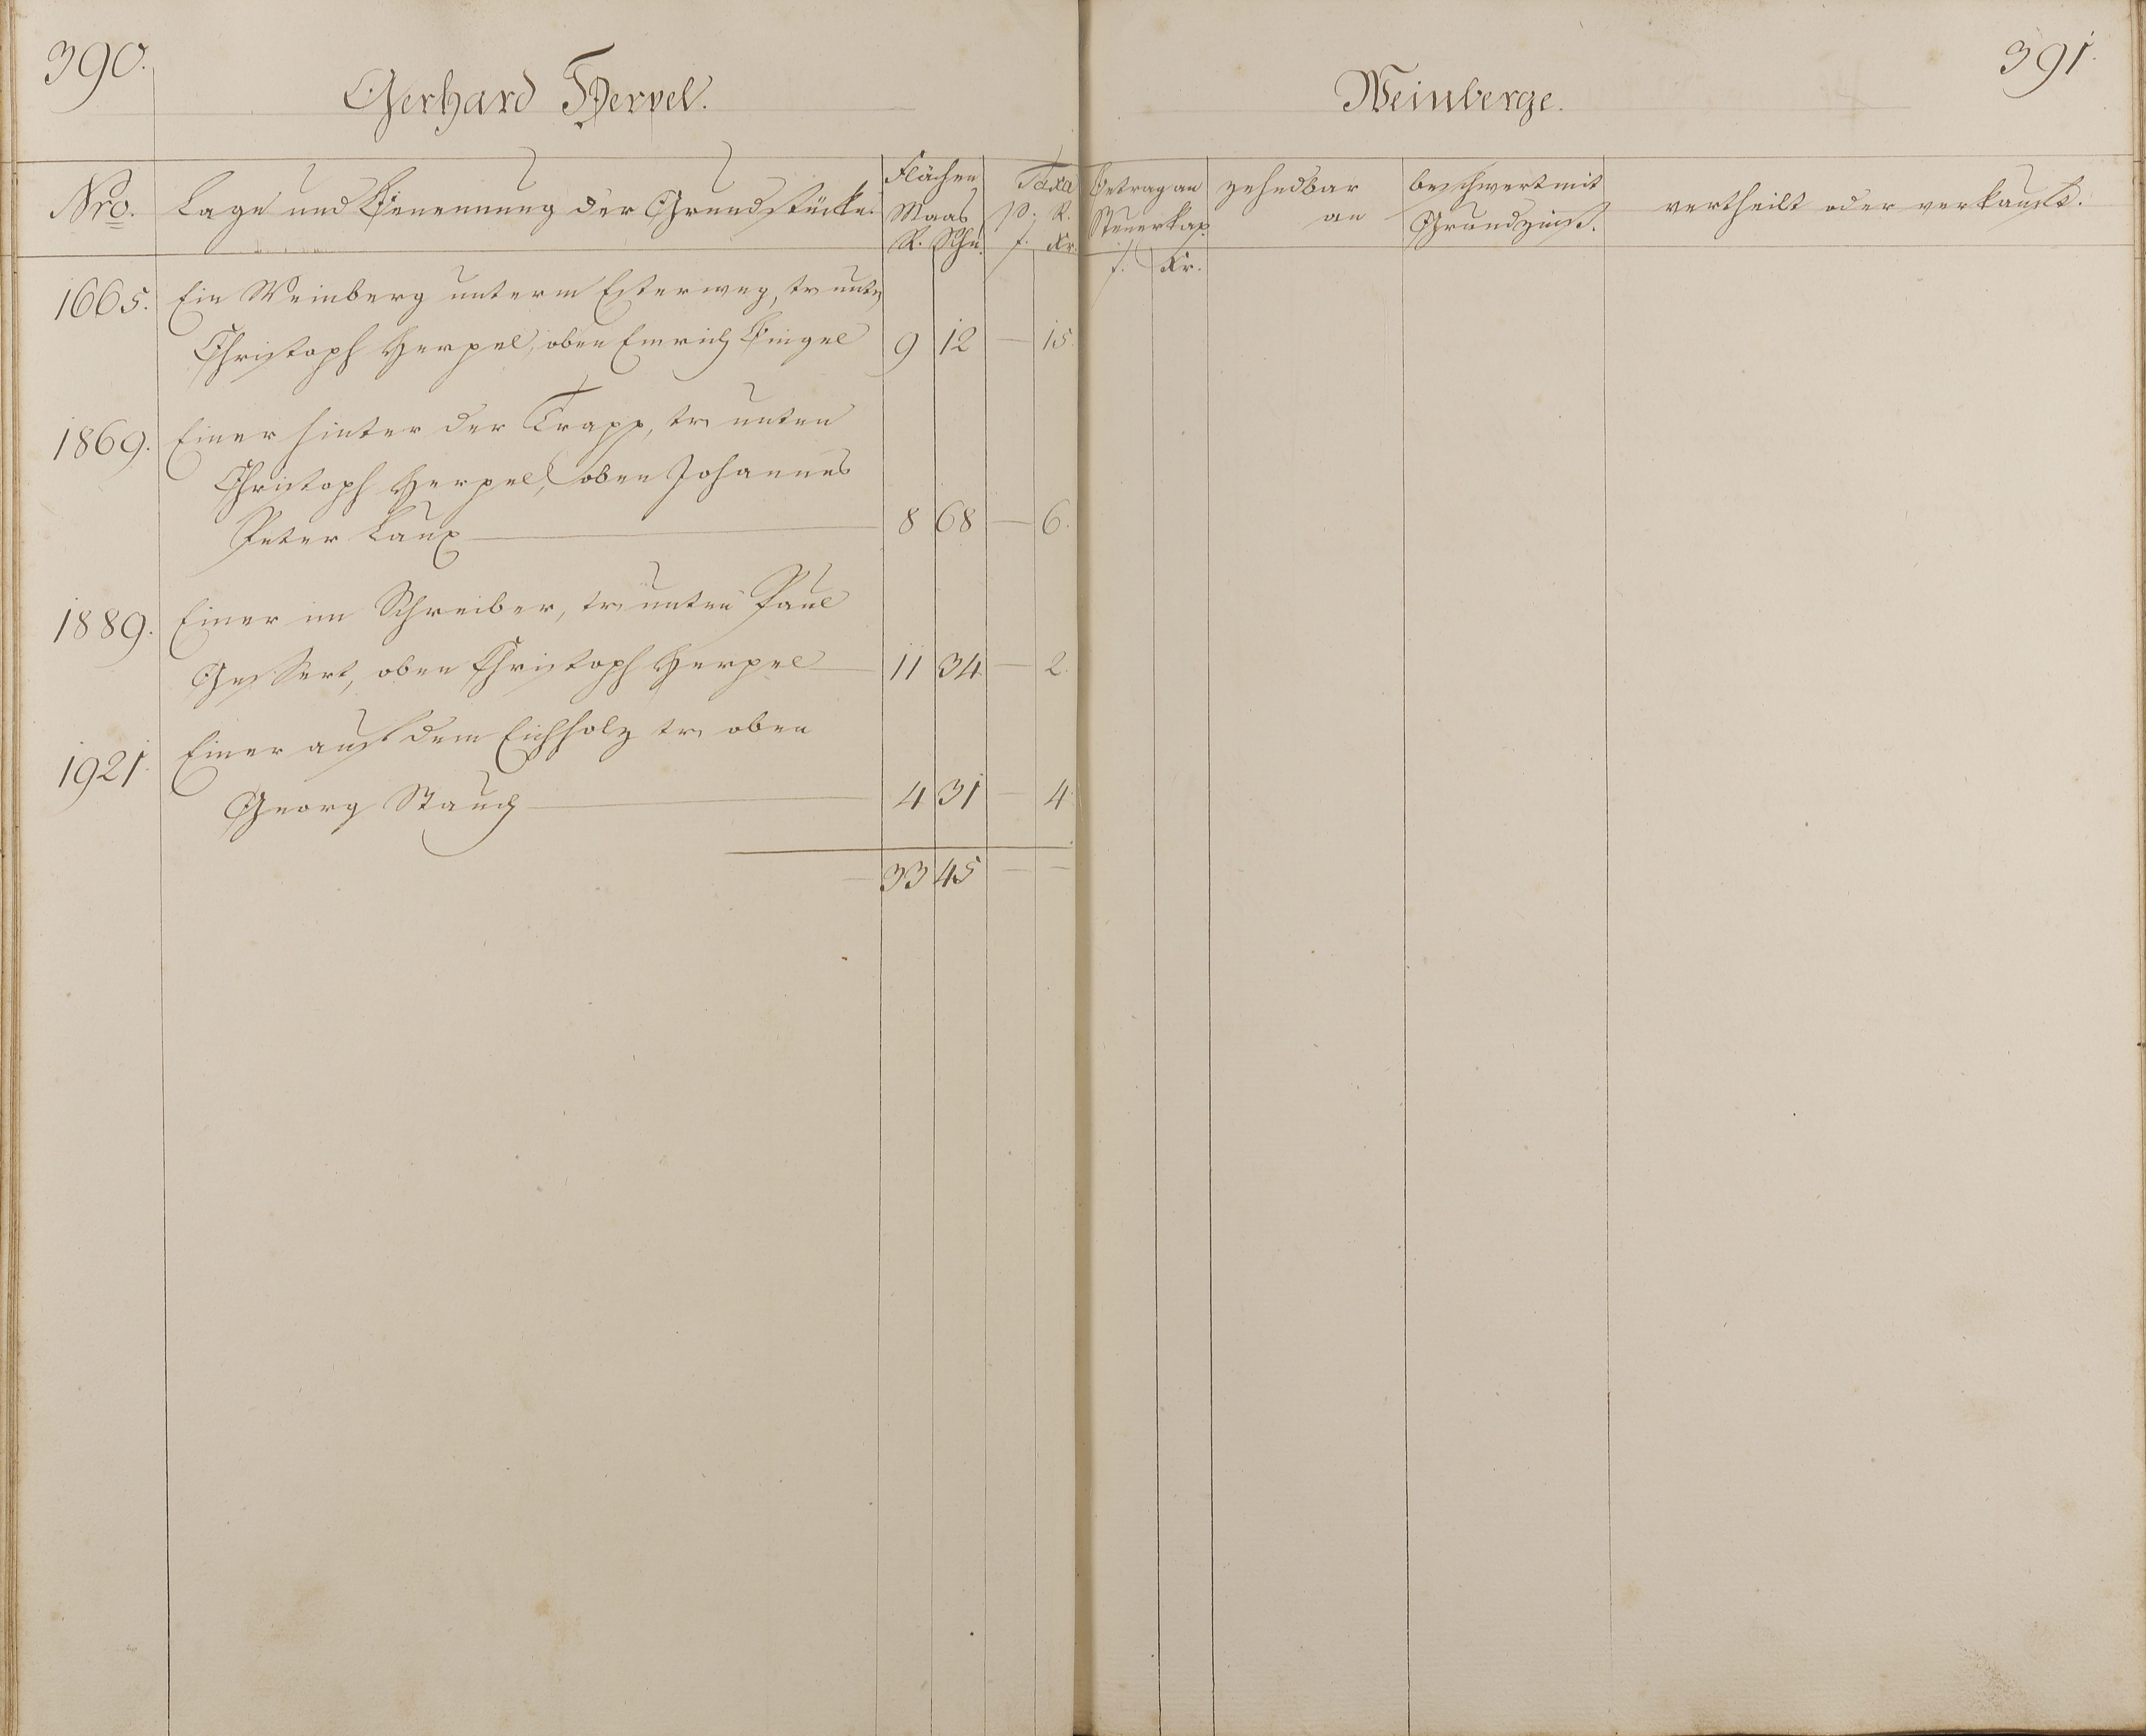 390.
Gerhard Herpel.
Nro. Lage und Benennung der Grundstücke. Flächen Maas R. Schu. Taxa p. R. f. Kr.
1665. Ein Weinberg unterm Esterweg, tr. unten
Christoph Herpel, oben Emrich Bingel 9 12 — 15.
1869. Einer hinter der Trapp, tr. unten
Christoph Herpel, oben Johannes
Peter Laux — 8 68 — 6.
1889. Einer im Schreiber, tr. unten Paul
Gessert, oben Christoph Herpel — 11 34 — 2.
1921. Einer auf dem Eichholz tr. oben
Georg Stauch — 4 31 — 4
— 33 45 — —
391.
Weinberge.
Betrag an Steuerkap. f. Kr. zehndbar an beschwert mit Grundzinß. vertheilt oder verkauft.